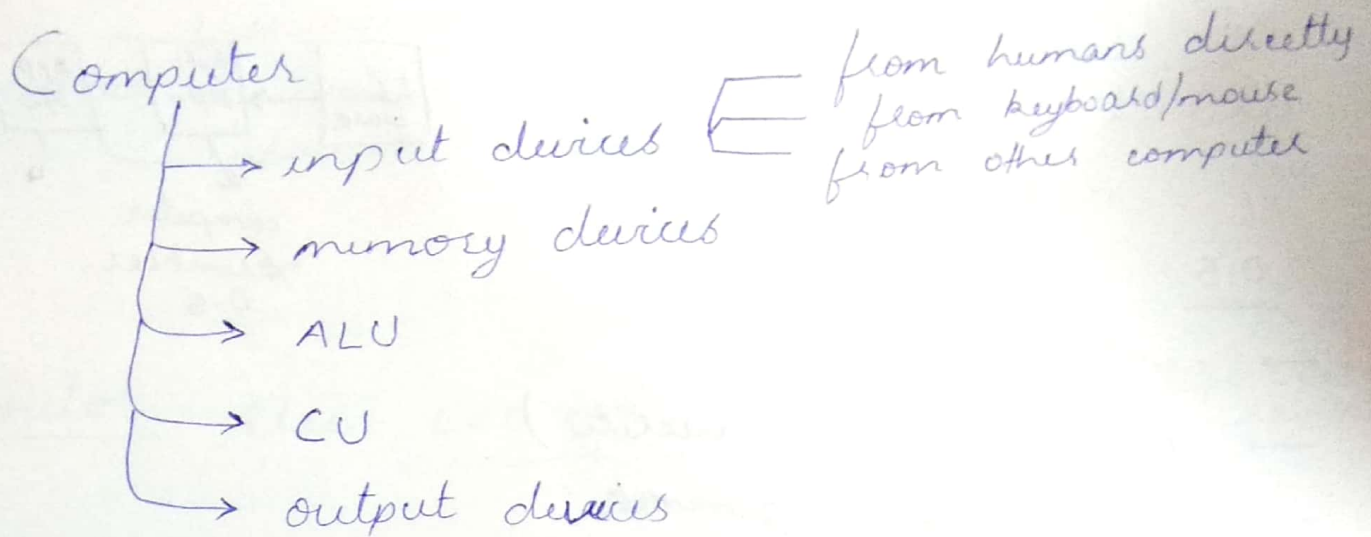 Computer
input devices
from humans directly
from keyboard/mouse
from other computer
memory devices
ALU
CU
output devices